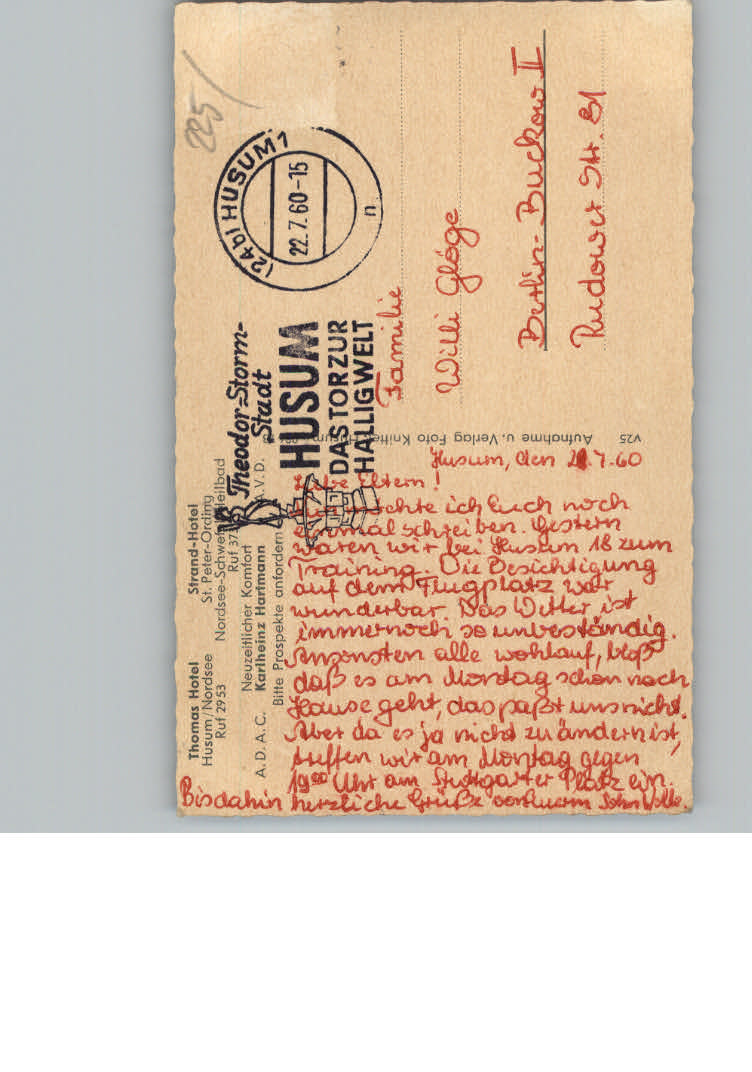 225/
(24b) HUSUM 1
22.7.60-15
n
Theodor=Storm-
Stadt
HUSUM
DAS TOR ZUR
HALLIGWELT
Thomas Hotel
Husum/Nordsee
Ruf 2953
Strand-Hotel
St. Peter-Ording
Nordsee-Schwefelheilbad
Ruf 37
Neuzeitlicher Komfort
A. D. A. C. Karlheinz Hartmann A. V. D.
Bitte Prospekte anfordern
Aufnahme u. Verlag Foto Knittel, Husum
V25
Familie
Willi Glöge
Berlin-Buckow II
Rudower Str. 81
Husum, den 21.7.60
Liebe Eltern!
möchte ich Euch noch
einmal schreiben. Gestern
waren wir bei Husum 18 zum
Training. Die Besichtigung
auf dem Flugplatz war
wunderbar. Das Wetter ist
immernoch so unbeständig.
Ansonsten alle wohlauf, bloß
daß es am Montag schon nach
Hause geht, das paßt uns nicht.
Aber da es ja nicht zu ändern ist,
treffen wir am Montag gegen
19⁰⁰ Uhr am Stuttgarter Platz ein.
Bis dahin herzliche Grüße von Euerm Sohn Wolle.